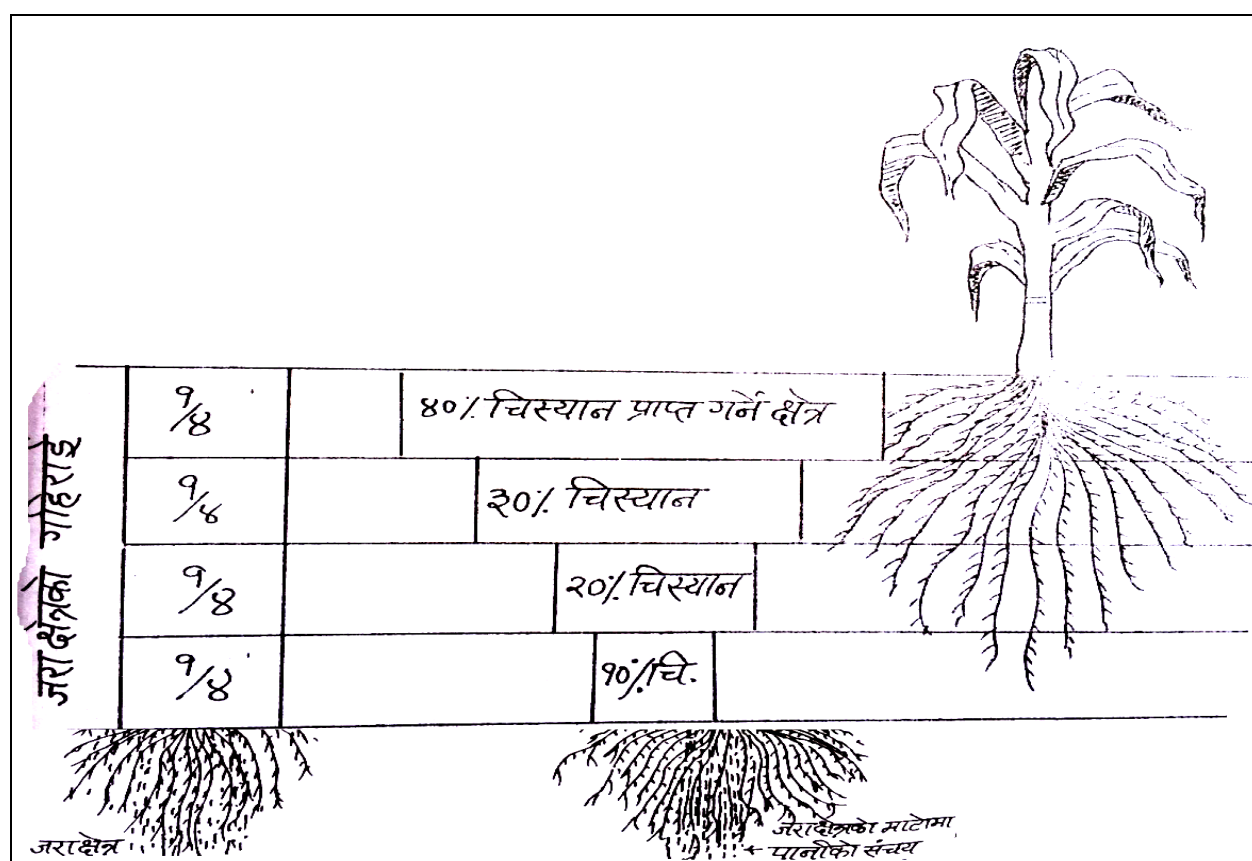 जराक्षेत्रको गहिराई
१/४
४०% चिस्यान प्राप्त गर्ने क्षेत्र
१/४
३०% चिस्यान
१/४
२०% चिस्यान
१/४
१०% चि.
जराक्षेत्र
जराक्षेत्रको माटोमा
पानीको संचय